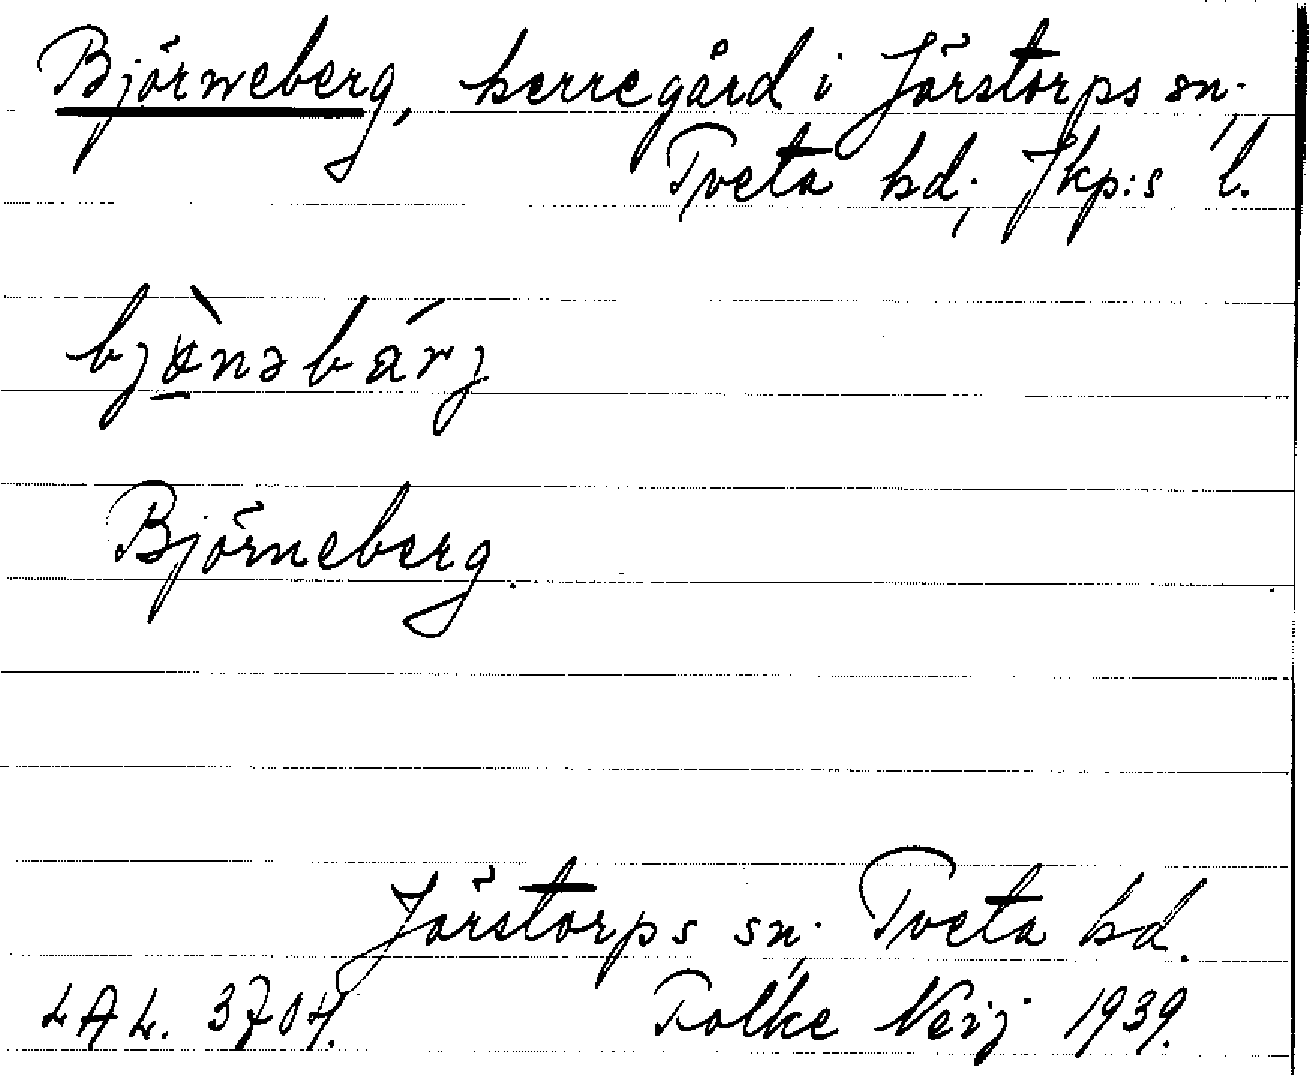 Björneberg, herregård i Järstorps sn.,
Tveta hd., Jkp:s l.
bjø̱̀nəbárj
Björneberg.
Järstorps sn., Tveta hd.
LAL. 3704. Folke Neij 1939.